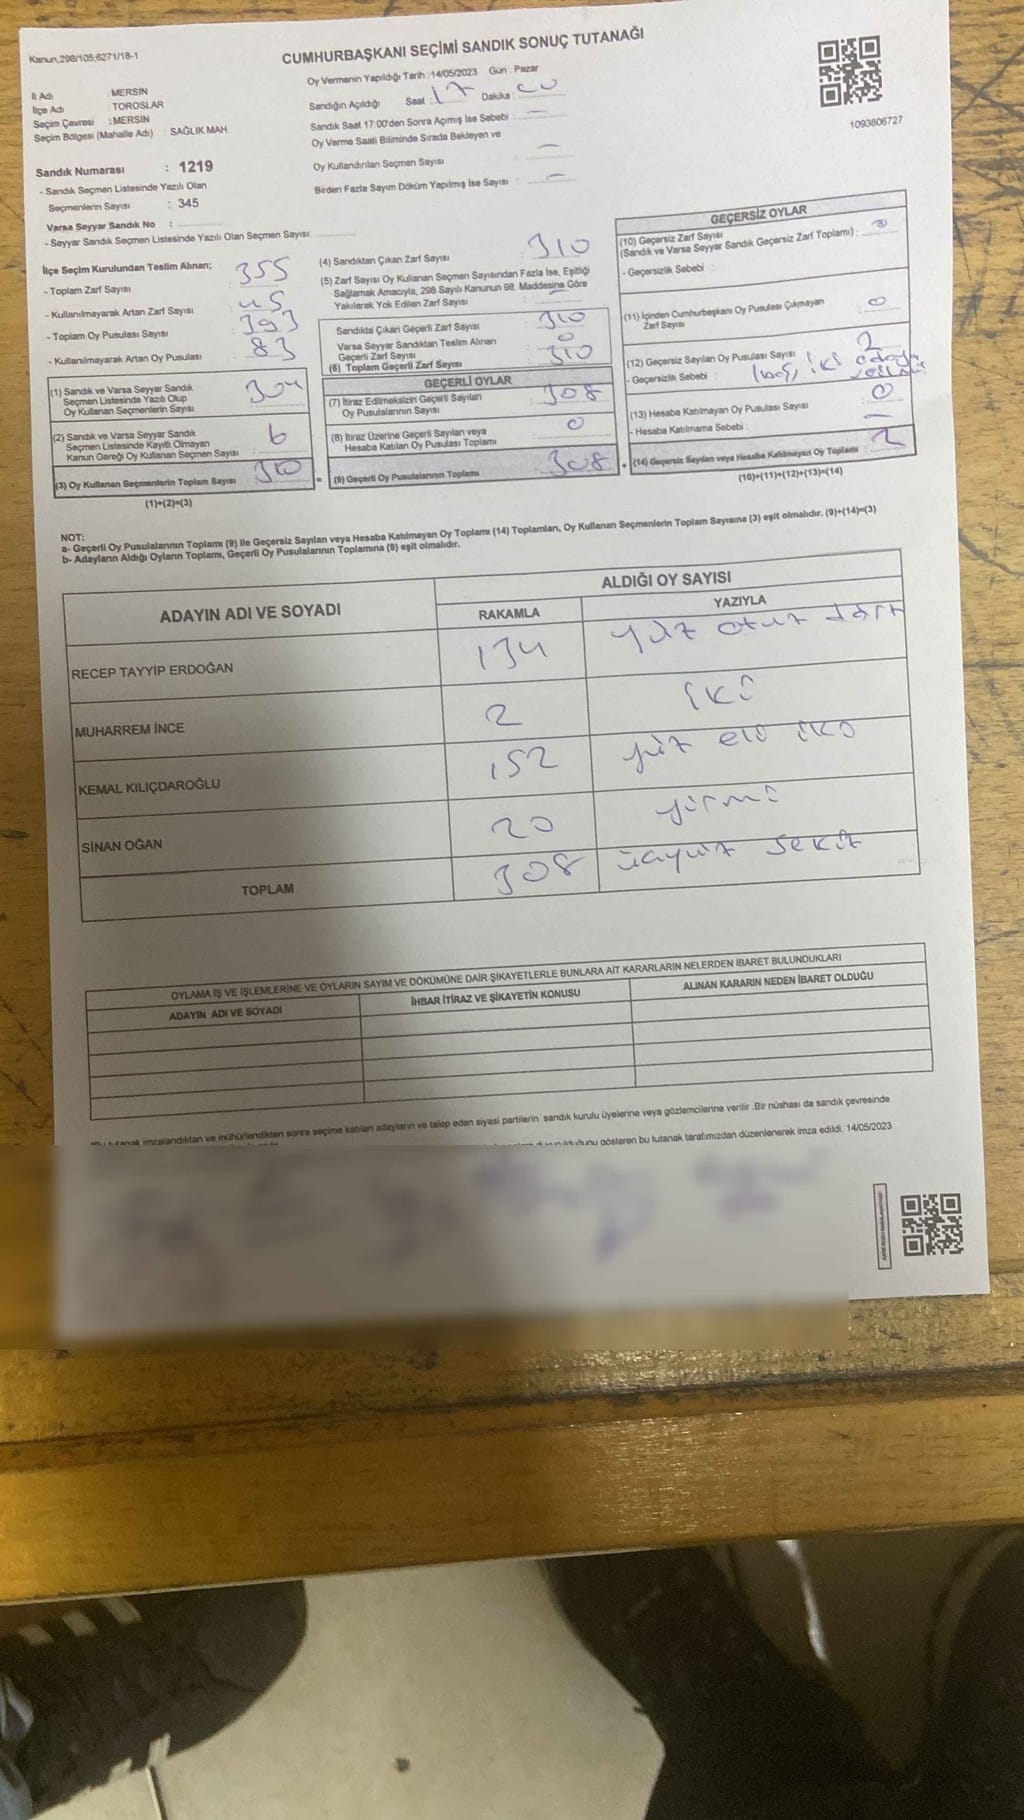 Kanun,298/105;6271/18-1
CUMHURBAŞKANI SEÇİMİ SANDIK SONUÇ TUTANAĞI
İl Adı : MERSİN
İlçe Adı : TOROSLAR
Seçim Çevresi : MERSİN
Seçim Bölgesi (Mahalle Adı) : SAĞLIK MAH.
Oy Vermenin Yapıldığı Tarih :14/05/2023 Gün : Pazar
Sandığın Açıldığı Saat : 17 Dakika : 00
Sandık Saat 17:00'den Sonra Açımış İse Sebebi : —
Oy Verme Saati Bitiminde Sırada Bekleyen ve
Oy Kullandırılan Seçmen Sayısı : —
Birden Fazla Sayım Döküm Yapılmış İse Sayısı : —
1093806727
Sandık Numarası : 1219
- Sandık Seçmen Listesinde Yazılı Olan
Seçmenlerin Sayısı : 345
Varsa Seyyar Sandık No :
- Seyyar Sandık Seçmen Listesinde Yazılı Olan Seçmen Sayısı:
İlçe Seçim Kurulundan Teslim Alınan;
- Toplam Zarf Sayısı : 355
- Kullanılmayarak Artan Zarf Sayısı : 45
- Toplam Oy Pusulası Sayısı : 393
- Kullanılmayarak Artan Oy Pusulası : 83
(1) Sandık ve Varsa Seyyar Sandık
Seçmen Listesinde Yazılı Olup
Oy Kullanan Seçmenlerin Sayısı : 304
(2) Sandık ve Varsa Seyyar Sandık
Seçmen Listesinde Kayıtlı Olmayan
Kanun Gereği Oy Kullanan Seçmen Sayısı : 6
(3) Oy Kullanan Seçmenlerin Toplam Sayısı 310
(1)+(2)=(3)
(4) Sandıktan Çıkan Zarf Sayısı : 310
(5) Zarf Sayısı Oy Kullanan Seçmen Sayısından Fazla İse, Eşitliği
Sağlamak Amacıyla, 298 Sayılı Kanunun 98. Maddesine Göre
Yakılarak Yok Edilen Zarf Sayısı : —
Sandıkta Çıkan Geçerli Zarf Sayısı : 310
Varsa Seyyar Sandıktan Teslim Alınan
Geçerli Zarf Sayısı : 0
(6) Toplam Geçerli Zarf Sayısı 310
GEÇERLİ OYLAR
(7) İtiraz Edilmeksizin Geçerli Sayılan
Oy Pusulalarının Sayısı : 308
(8) İtiraz Üzerine Geçerli Sayılan veya
Hesaba Katılan Oy Pusulası Toplamı : 0
= (9) Geçerli Oy Pusulalarının Toplamı 308
GEÇERSİZ OYLAR
(10) Geçersiz Zarf Sayısı
(Sandık ve Varsa Seyyar Sandık Geçersiz Zarf Toplamı) : 0
- Geçersizlik Sebebi :
(11) İçinden Cumhurbaşkanı Oy Pusulası Çıkmayan
Zarf Sayısı : 0
(12) Geçersiz Sayılan Oy Pusulası Sayısı 2
- Geçersizlik Sebebi : 1 boş, iki adaya
(13) Hesaba Katılmayan Oy Pusulası Sayısı : 0
- Hesaba Katılmama Sebebi : —
+ (14) Geçersiz Sayılan veya Hesaba Katılmayan Oy Toplamı : 2
(10)+(11)+(12)+(13)=(14)
NOT:
a- Geçerli Oy Pusulalarının Toplamı (9) İle Geçersiz Sayılan veya Hesaba Katılmayan Oy Toplamı (14) Toplamları, Oy Kullanan Seçmenlerin Toplam Sayısına (3) eşit olmalıdır. (9)+(14)=(3)
b- Adayların Aldığı Oyların Toplamı, Geçerli Oy Pusulalarının Toplamına (9) eşit olmalıdır.
ADAYIN ADI VE SOYADI
ALDIĞI OY SAYISI
RAKAMLA YAZIYLA
RECEP TAYYİP ERDOĞAN 134 yüz otuz dört
MUHARREM İNCE 2 iki
KEMAL KILIÇDAROĞLU 152 yüz elli iki
SİNAN OĞAN 20 yirmi
TOPLAM 308 üçyüz sekiz
OYLAMA İŞ VE İŞLEMLERİNE VE OYLARIN SAYIM VE DÖKÜMÜNE DAİR ŞİKAYETLERLE BUNLARA AİT KARARLARIN NELERDEN İBARET BULUNDUKLARI
ADAYIN ADI VE SOYADI İHBAR İTİRAZ VE ŞİKAYETİN KONUSU ALINAN KARARIN NEDEN İBARET OLDUĞU
tutanak imzalandıktan ve mühürlendikten sonra seçime katılan adayların ve talep eden siyasi partilerin sandık kurulu üyelerine veya gözlemcilerine verilir .Bir nüshası da sandık çevresinde
gösteren bu tutanak tarafımızdan düzenlenerek imza edildi. 14/05/2023